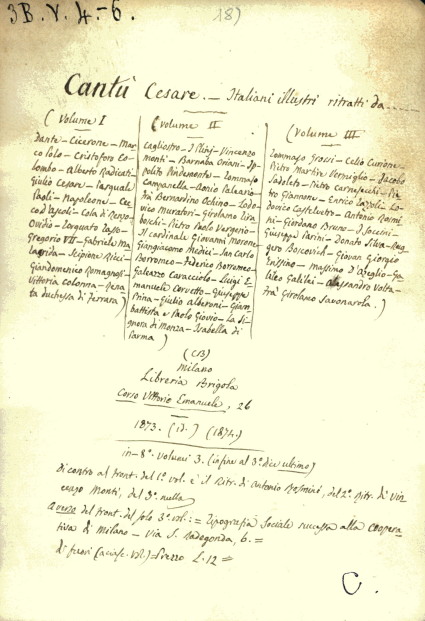 3B. V. 4-6.
187
Cantù Cesare. — Italiani illustri ritratti da......
( Volume I
Dante — Cicerone — Mar
co Polo — Cristoforo Co-
lombo — Alberto Radicati
Giulio Cesare — Pasquale
Paoli — Napoleone — Cec
co d'Ascoli — Cola di Renzo
Ovidio — Torquato Tasso —
Gregorio VII — Gabriele Ma
lagrida — Scipione Ricci
Giandomenico Romagnosi
Vittoria Colonna — Rena
ta duchessa di Ferrara )
( Volume II
Cagliostro — Vincenzo
Monti — Barnaba Oriani — Ip-
polito Pindemonte — Tommaso
Campanella — Aonio Paleario
Bernardino Ochino — Lodo-
vico Muratori — Girolamo Tira
boschi — Pietro Paolo Vergerio —
Il cardinale Giovanni Morone
Giangiacomo Medici — San Carlo
Borromeo — Federico Borromeo —
Galeazzo Caracciolo — Luigi E-
manuele Corvetto — Giuseppe
Prina — Giulio Alberoni — Giam
battista e Paolo Giovio — La Si
gnora di Monza — Isabella di
Parma )
( Volume III
Tommaso Grossi — Celio Curione —
Pietro Martire Vermiglio — Jacobo
Sadoleto — Pietro Carnesecchi — Pie
tro Giannone — Enrico Lo
dovico Castelvetro — Antonio Rosmi
ni — Giordano Bruno — I Soccini —
Giuseppe Parini — Donato Silva — Rug
gero Boscovich — Giovan Giorgio
Trissino — Massimo d'Azeglio — Ga
lileo Galilei — Alessandro Volta —
Girolamo Savonarola. )
(CB)
Milano
Libreria Brigola
Corso Vittorio Emanuele, 26
1873. (id.) (1874.)
in-8°. Volumi 3. (infine al 3° dice ultimo)
Di contro al front. del 1° vol. è il Ritr. di Antonio Rosmini, del 2° Ritr. di Vin
cenzo Monti, del 3° nulla
A verso del front. del solo 3° vol: = Tipografia Sociale successa alla Coopera
tiva di Milano — Via S. Radegonda, 6. =
di fuori (a ciasc. vol.) = Prezzo L. 12 =
C.